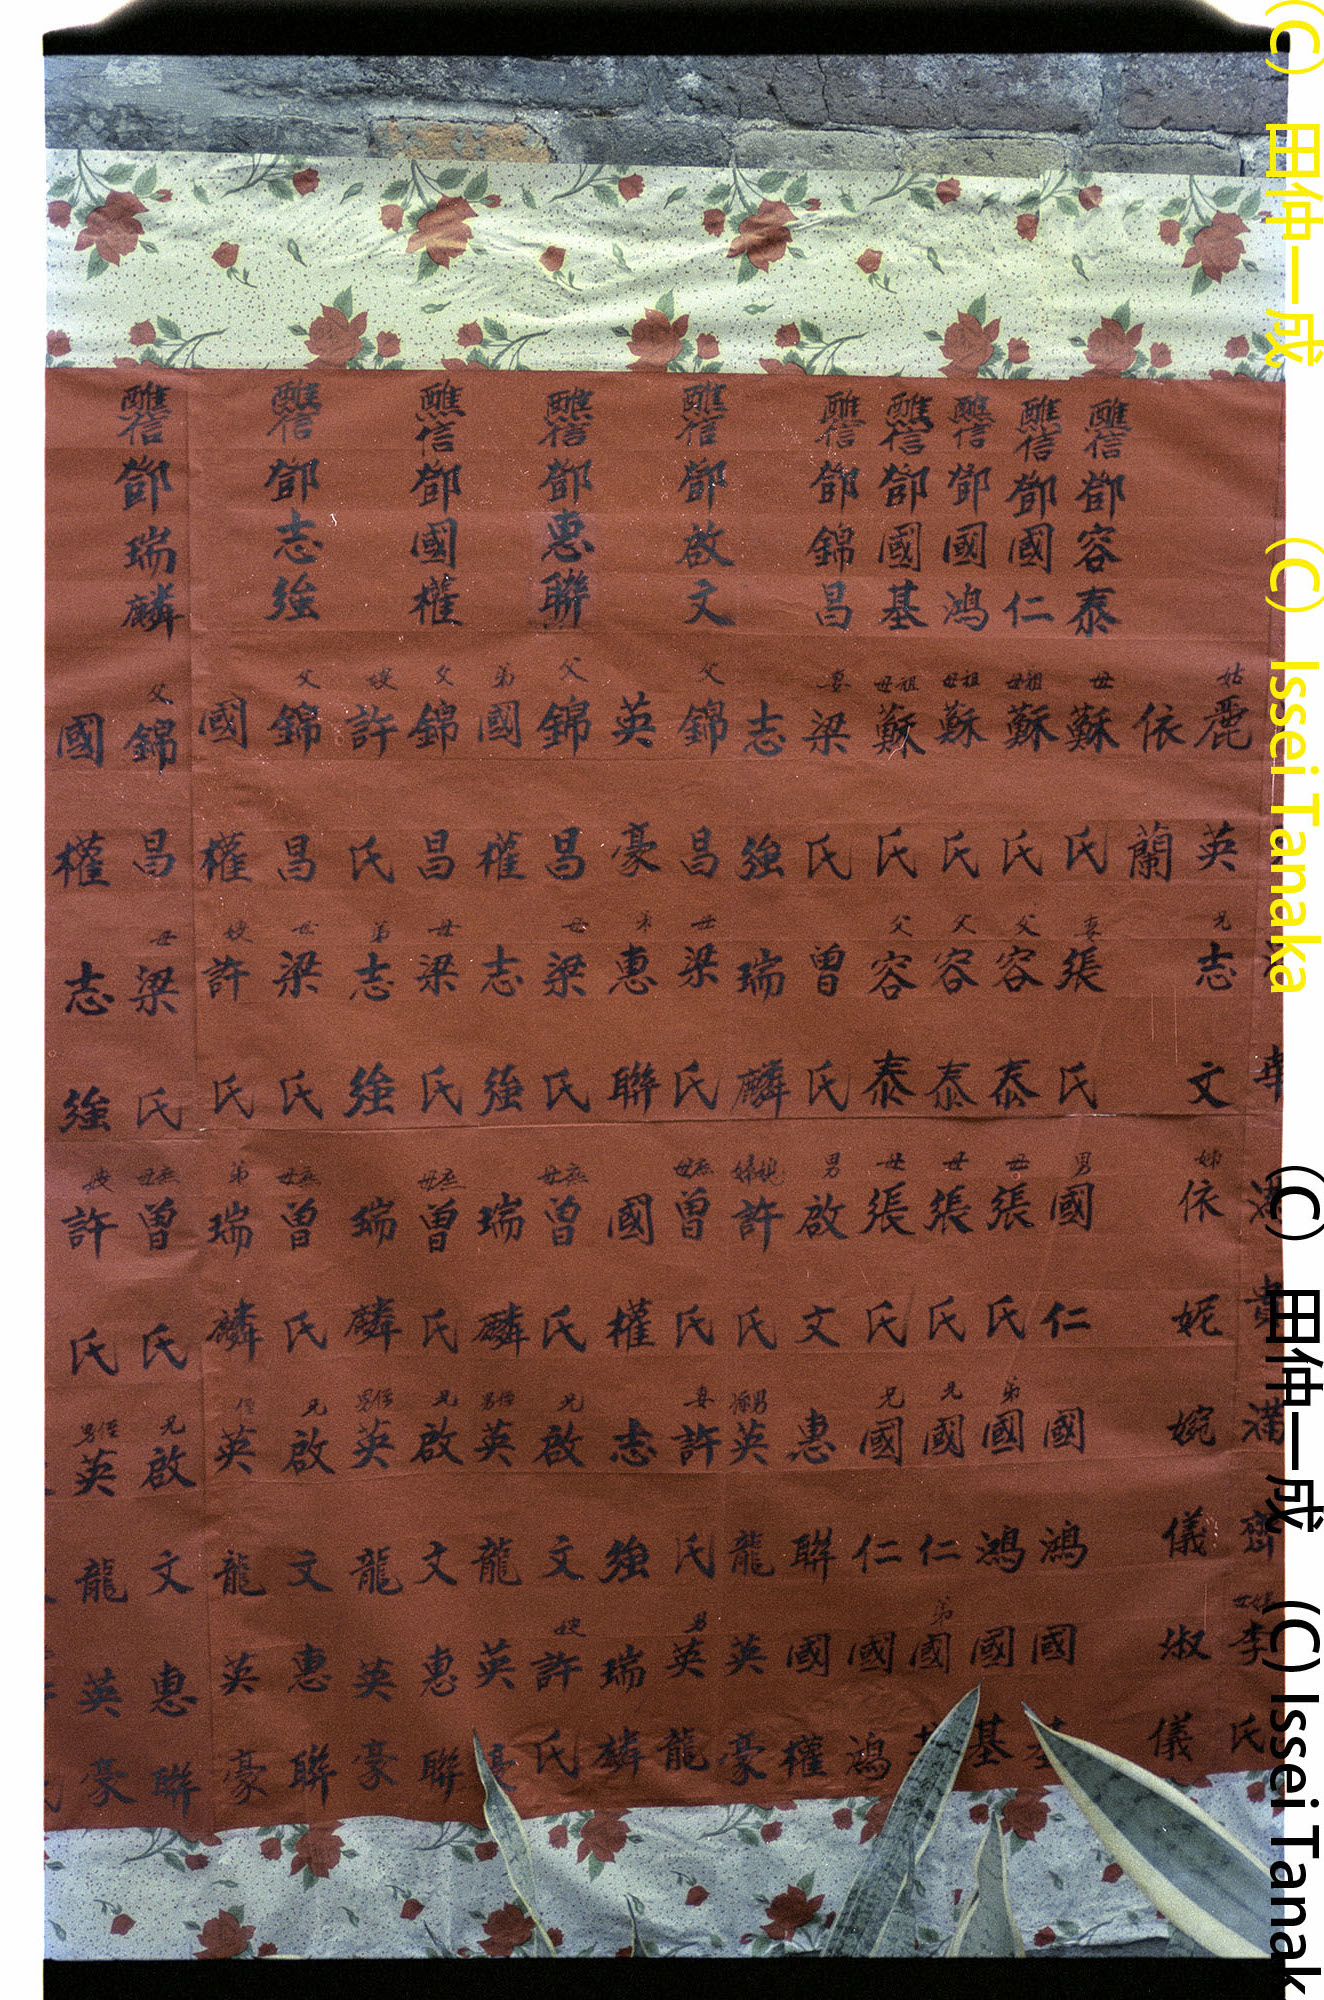 貴滿齊李氏
姑麗英兄志文姊依妮婉儀淑儀
依蘭
醮信鄧容泰母蘇氏妻張氏男國仁國鴻國基
醮信鄧國仁祖母蘇氏父容泰母張氏弟國鴻國基
醮信鄧國鴻祖母蘇氏父容泰母張氏兄國仁弟國基
醮信鄧國基祖母蘇氏父容泰母張氏兄國仁國鴻
醮信鄧錦昌妻梁氏曾氏男啟文惠聯國權
志強瑞麟媳婦許氏男孫英龍英豪
醮信鄧啟文父錦昌母梁氏庶母曾氏妻許氏男英龍
英豪弟惠聯國權志強瑞麟
醮信鄧惠聯父錦昌母梁氏庶母曾氏兄啟文嫂許氏
弟國權志強瑞麟侄男英龍英豪
醮信鄧國權父錦昌母梁氏庶母曾氏兄啟文惠聯
嫂許氏弟志強瑞麟侄男英龍英豪
醮信鄧志強父錦昌母梁氏庶母曾氏兄啟文惠聯
國權嫂許氏弟瑞麟侄英龍英豪
醮信鄧瑞麟父錦昌母梁氏庶母曾氏兄啟文惠聯
國權志強嫂許氏侄男英龍英豪
(C) 田仲一成 (C) Issei Tanaka
(C) 田仲一成 (C) Issei Tanak